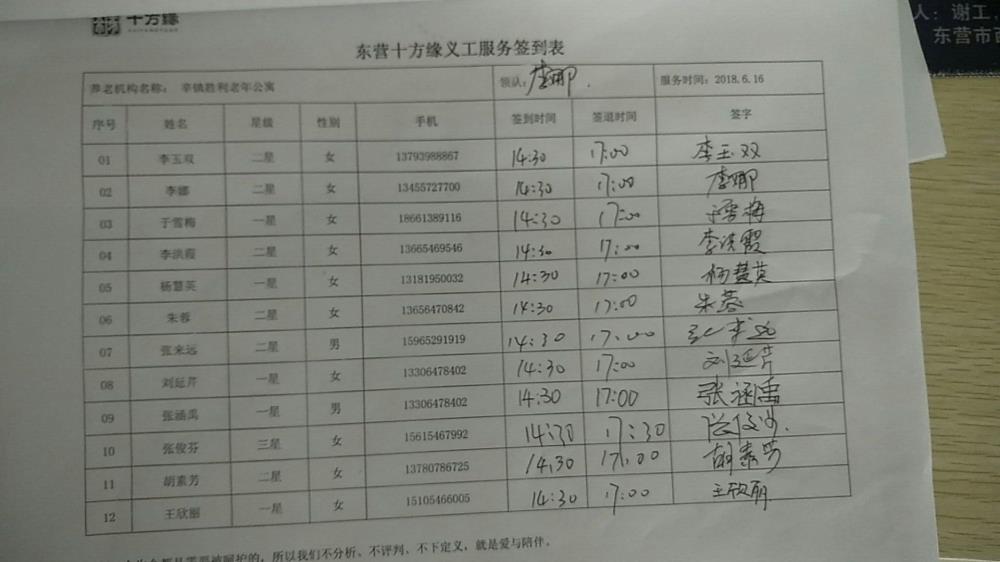 十方缘
人：谢工
东营市西
东营十方缘义工服务签到表
养老机构名称： 辛镇胜利老年公寓 领队：李娜 服务时间：2018.6.16
序号 姓名 星级 性别 手机 签到时间 签退时间 签字
01 李玉双 二星 女 13793988867 14:30 17:00 李玉双
02 李娜 二星 女 13455727700 14:30 17:00 李娜
03 于雪梅 一星 女 18661389116 14:30 17:00 于雪梅
04 李洪霞 二星 女 13665469546 14:30 17:00 李洪霞
05 杨慧英 一星 女 13181950032 14:30 17:00 杨慧英
06 朱蓉 二星 女 13656470842 14:30 17:00 朱蓉
07 张来远 二星 男 15965291919 14:30 17:00 张来远
08 刘延芹 一星 女 13306478402 14:30 17:00 刘延芹
09 张涵禹 一星 男 13306478402 14:30 17:00 张涵禹
10 张俊芬 三星 女 15615467992 14:30 17:30 张俊芬
11 胡素芳 二星 女 13780786725 14:30 17:00 胡素芳
12 王欣丽 一星 女 15105466005 14:30 17:00 王欣丽
需要被呵护的，所以我们不分析、不评判、不下定义，就是爱与陪伴。